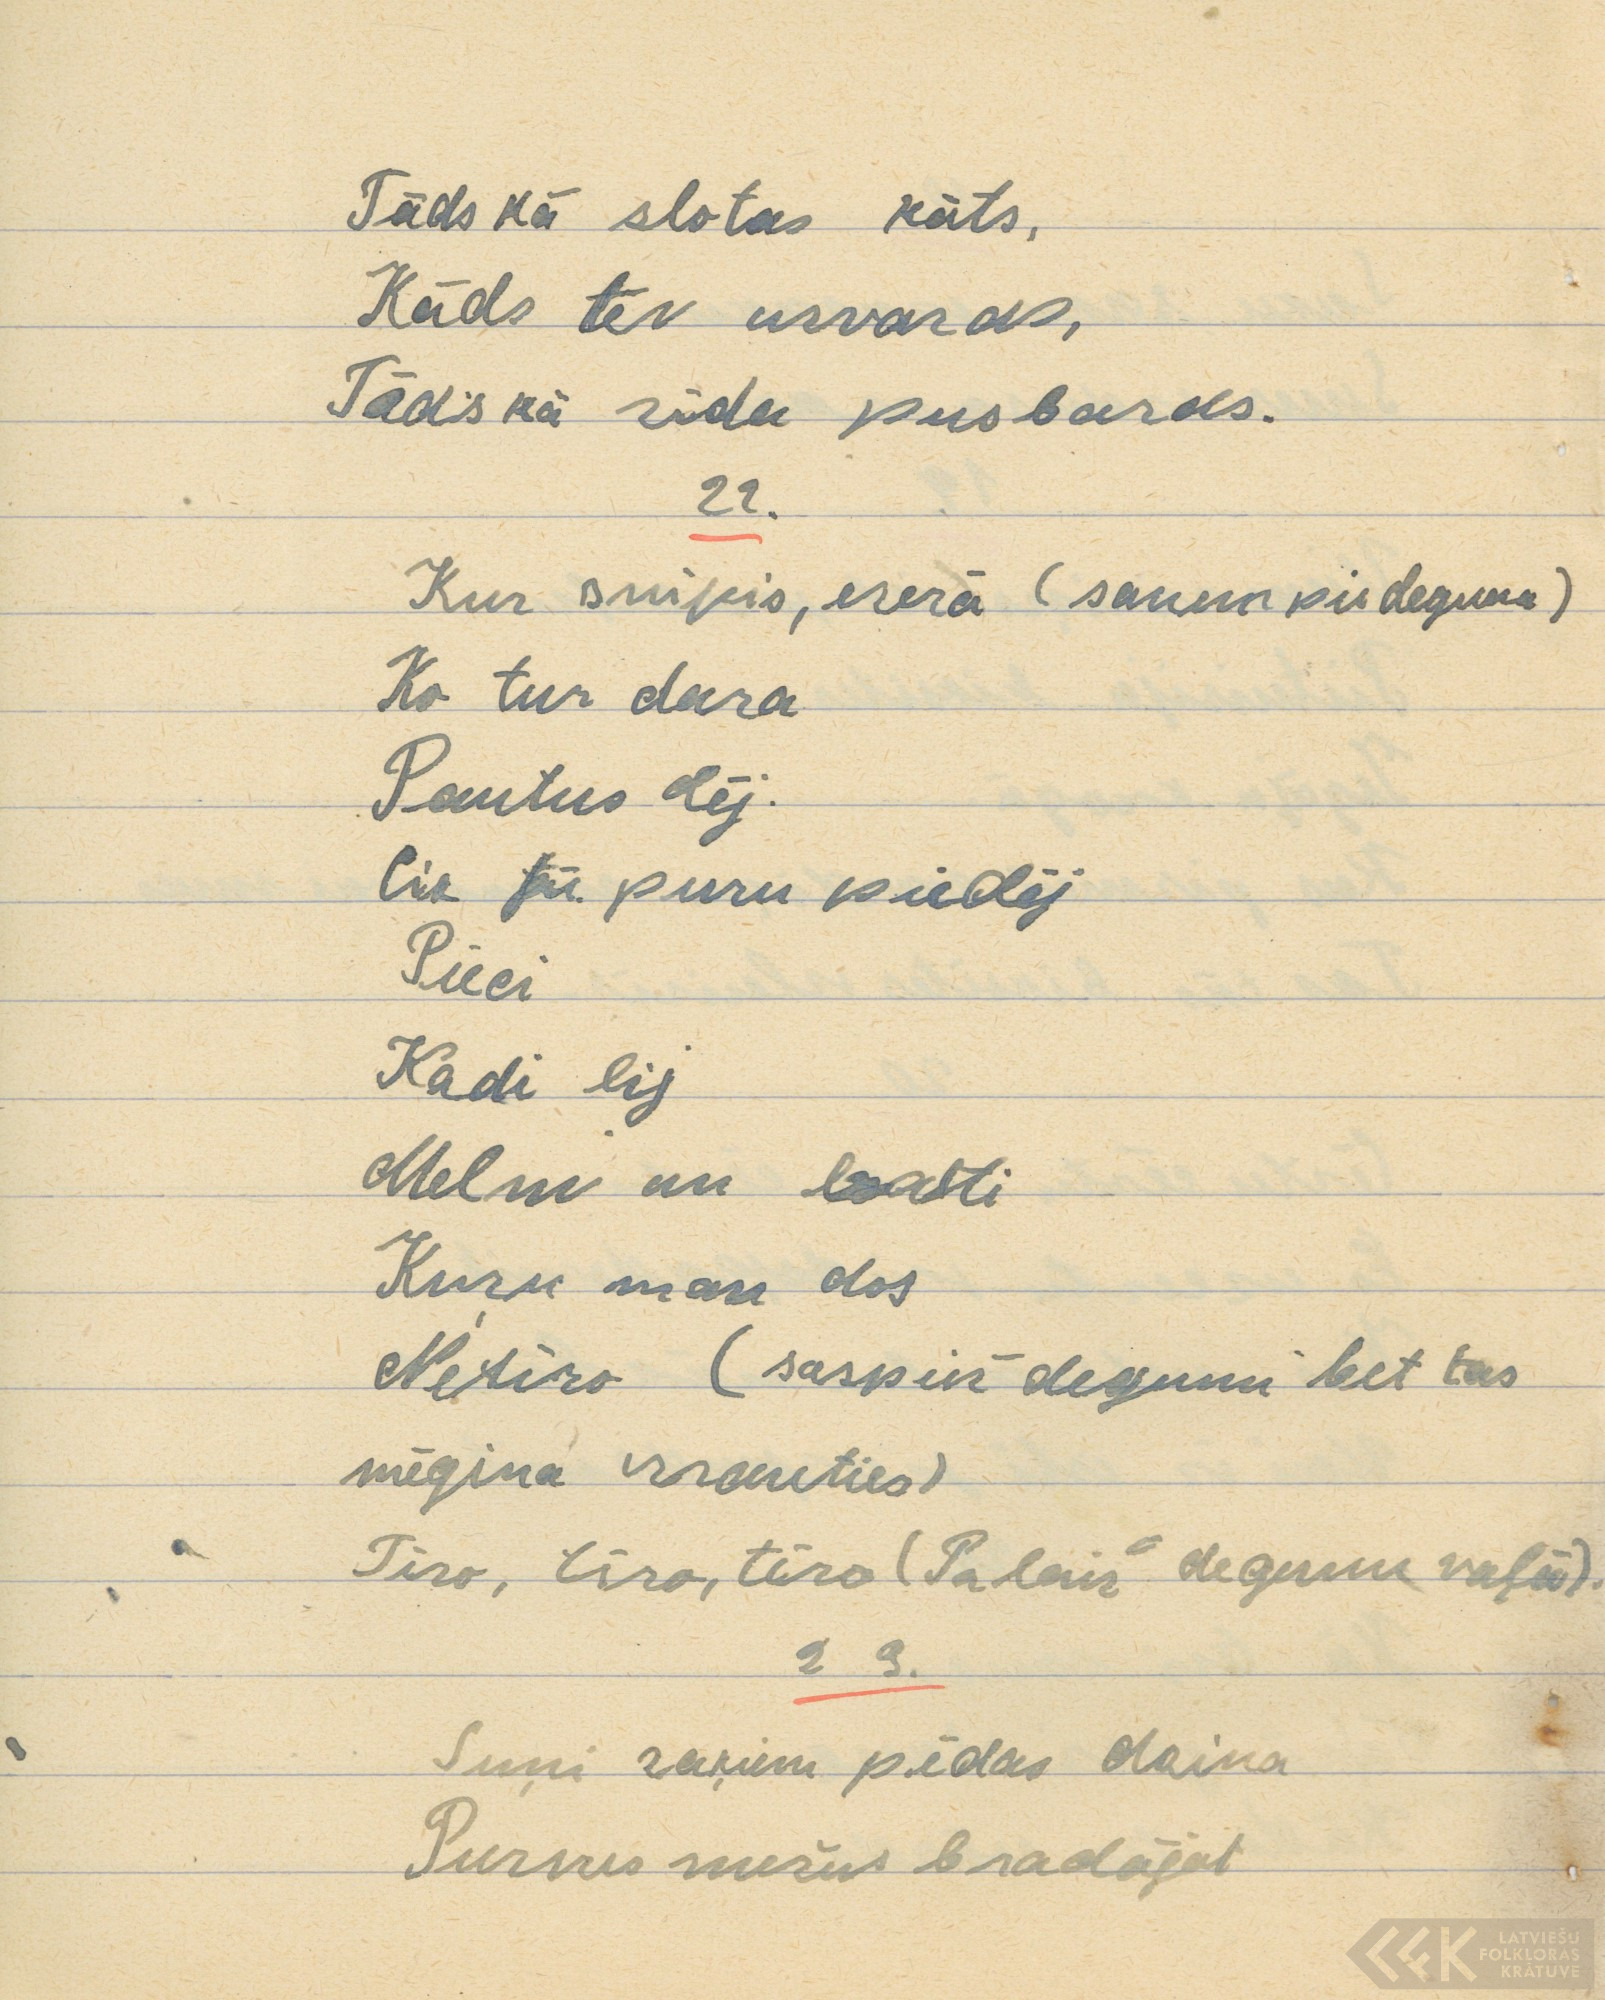 Tāds kā slotas kāts,
Kāds tev uzvaras,
Tāds kā zīda pusbaras.
22.
Kur snipis, ezerā (saņem pie deguna)
Ko tur dara
Pautus dēj.
Cik puru piedēj
Pieci
Kadi lij
Melni un basti
Kuŗu man dos
Netīro (saspiež degunu bet tas
mēģina izrauties)
Tīro, tīro, tīro (Palaiž degunu vaļā).
23.
Suņi zaķiem pēdas daina
Purvus mežus bradājat
LATVIEŠU
FOLKLORAS
KRĀTUVE